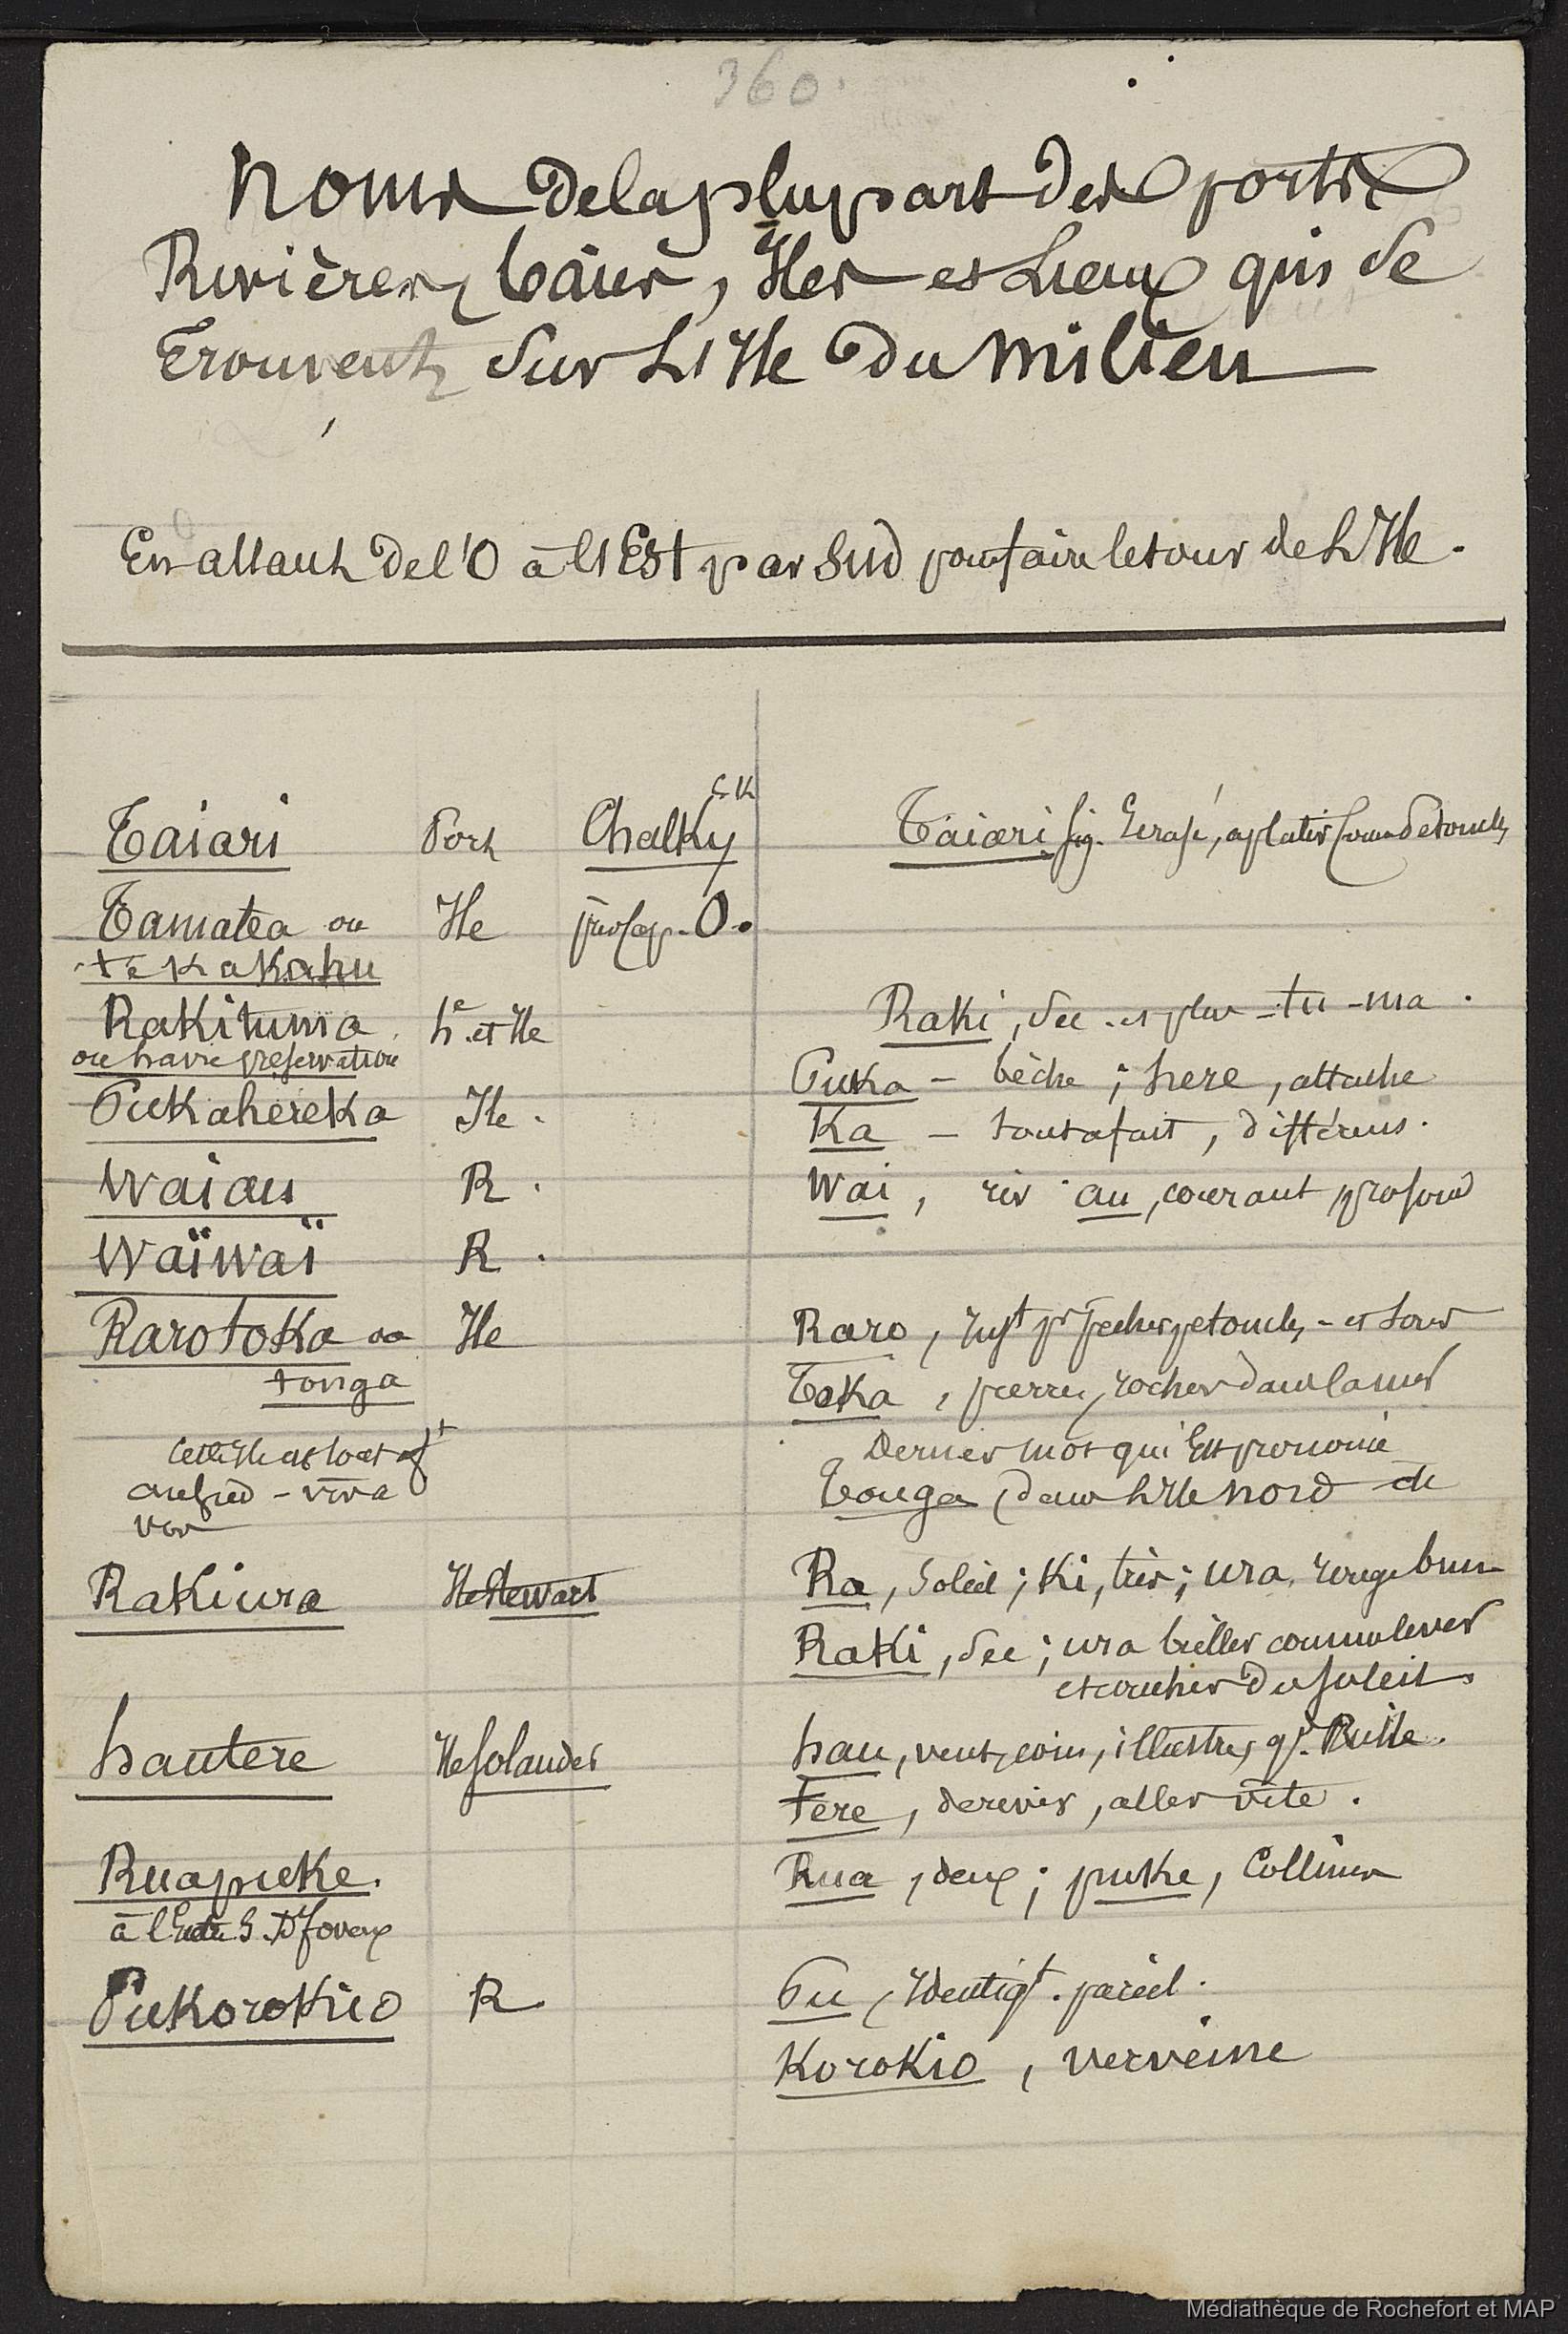 360.
Noms de la plupart des ports
Rivières, baies, Iles et Lieux qui se
Trouvent sur L'Ile du milieu
En allant de l'O à l'Est par Sud pour faire le tour de L'Ile.
Taiari Port Chalky Taiari, sig. Ecrasé, aplatir
Tamatea ou Ile O.
te Kakahu
Rakituma hé. et Ile Raki, sec. et plus - tu - ma.
ou havre préservation
Puka - bèche ; here, attache
Pukahereka Ile.
Ka - tout a fait, différens.
Waiau R. Wai, riv. au, courant, profond
Waïwaï R.
Rarotoka ou Ile Raro, pr pecher petoncles - et sous
tonga Toka, pierre, rocher dans la mer
Cette Ile est
Dernier mot qui Est prononcé
Tonga, dans L'Ile nord
Rakiura Ile Stewart Ra, Soleil ; Ki, très ; ura, rouge brun
Raki, sec ; ura briller comme lever
et coucher du soleil
hautere Ile Solander hau, vent, coin, illustre,
Tere, deriver, aller vite.
Ruapuke. Rua, deux ; puke, Collines
à l'Entrée S. Dt foveaux
Pukorokio R Pu, Identiqt. pareil.
Korokio, verveine
Médiathèque de Rochefort et MAP